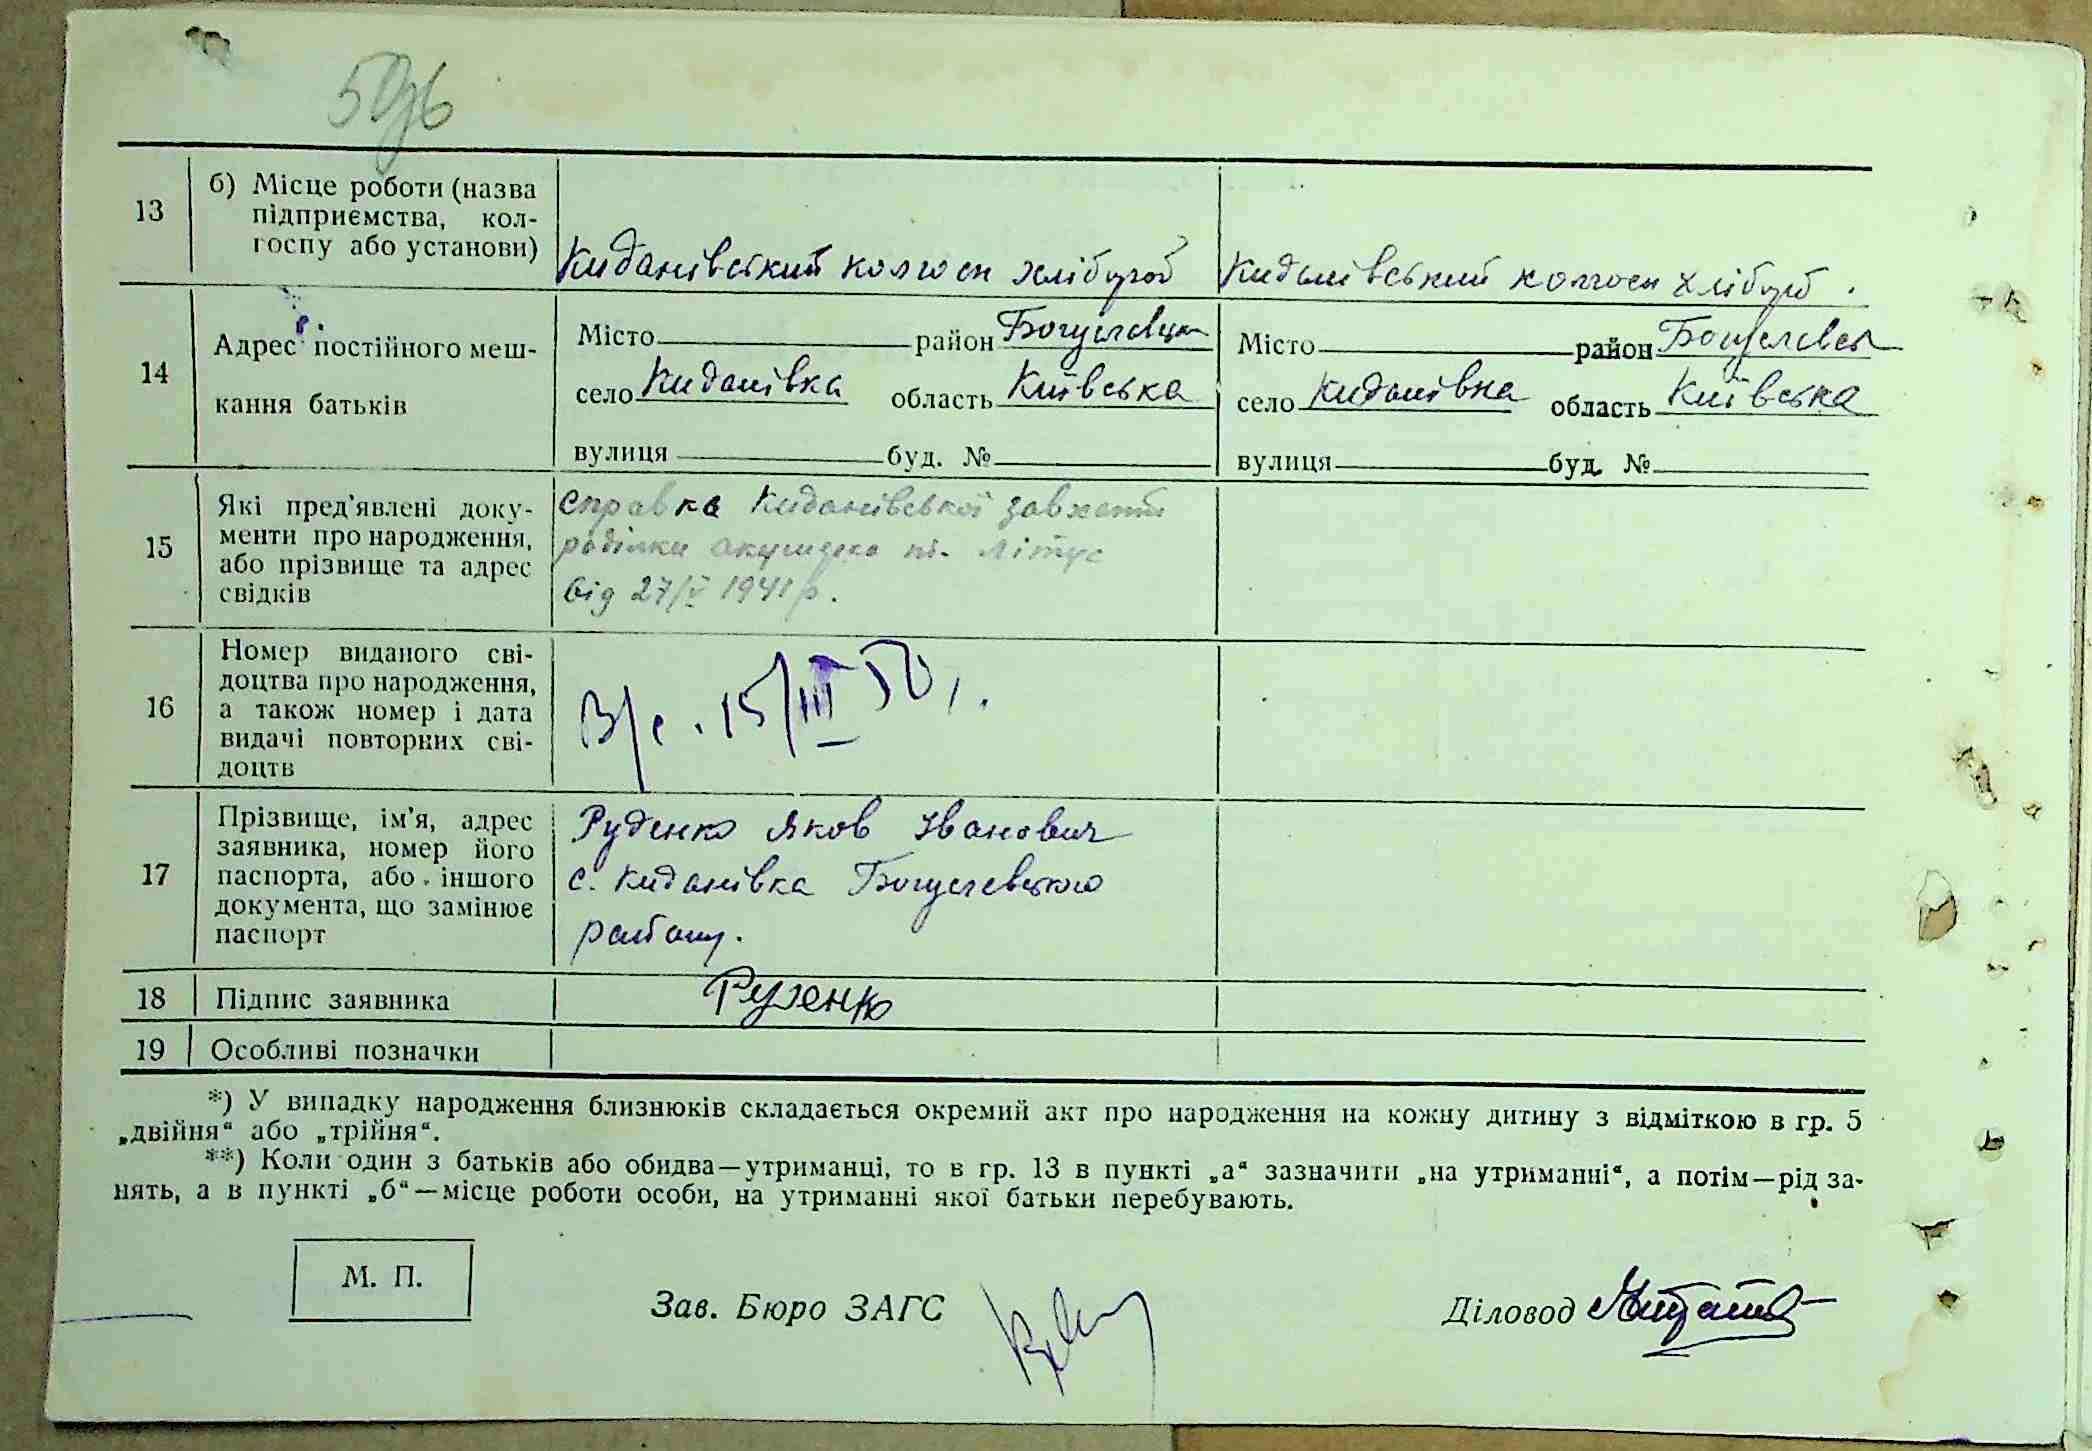 13 б) Місце роботи (назва
підприємства, кол-
госпу або установи)
Киданівський колгосп хлібороб
Киданівський колгосп хлібороб.
14 Адрес постійного меш-
кання батьків
Місто район Богуславськ
село Киданівка область Київська
вулиця буд. №
Місто район Богуславськ
село Киданівка область Київська
вулиця буд. №
15 Які пред'явлені доку-
менти про народження,
або прізвище та адрес
свідків
справка Киданівської
акушерка Літус
від 27/V 1941 р.
16 Номер виданого сві-
доцтва про народження,
а також номер і дата
видачі повторних сві-
доцтв
В/с. 15/III 50
17 Прізвище, ім'я, адрес
заявника, номер його
паспорта, або іншого
документа, що замінює
паспорт
Руденко Яков Іванович
с. Киданівка Богуславського
району.
18 Підпис заявника
Руденко
19 Особливі позначки
*) У випадку народження близнюків складається окремий акт про народження на кожну дитину з відміткою в гр. 5
„двійня“ або „трійня“.
**) Коли один з батьків або обидва—утриманці, то в гр. 13 в пункті „а“ зазначити „на утриманні“, а потім—рід за-
нять, а в пункті „б“—місце роботи особи, на утриманні якої батьки перебувають.
М. П.
Зав. Бюро ЗАГС
Діловод